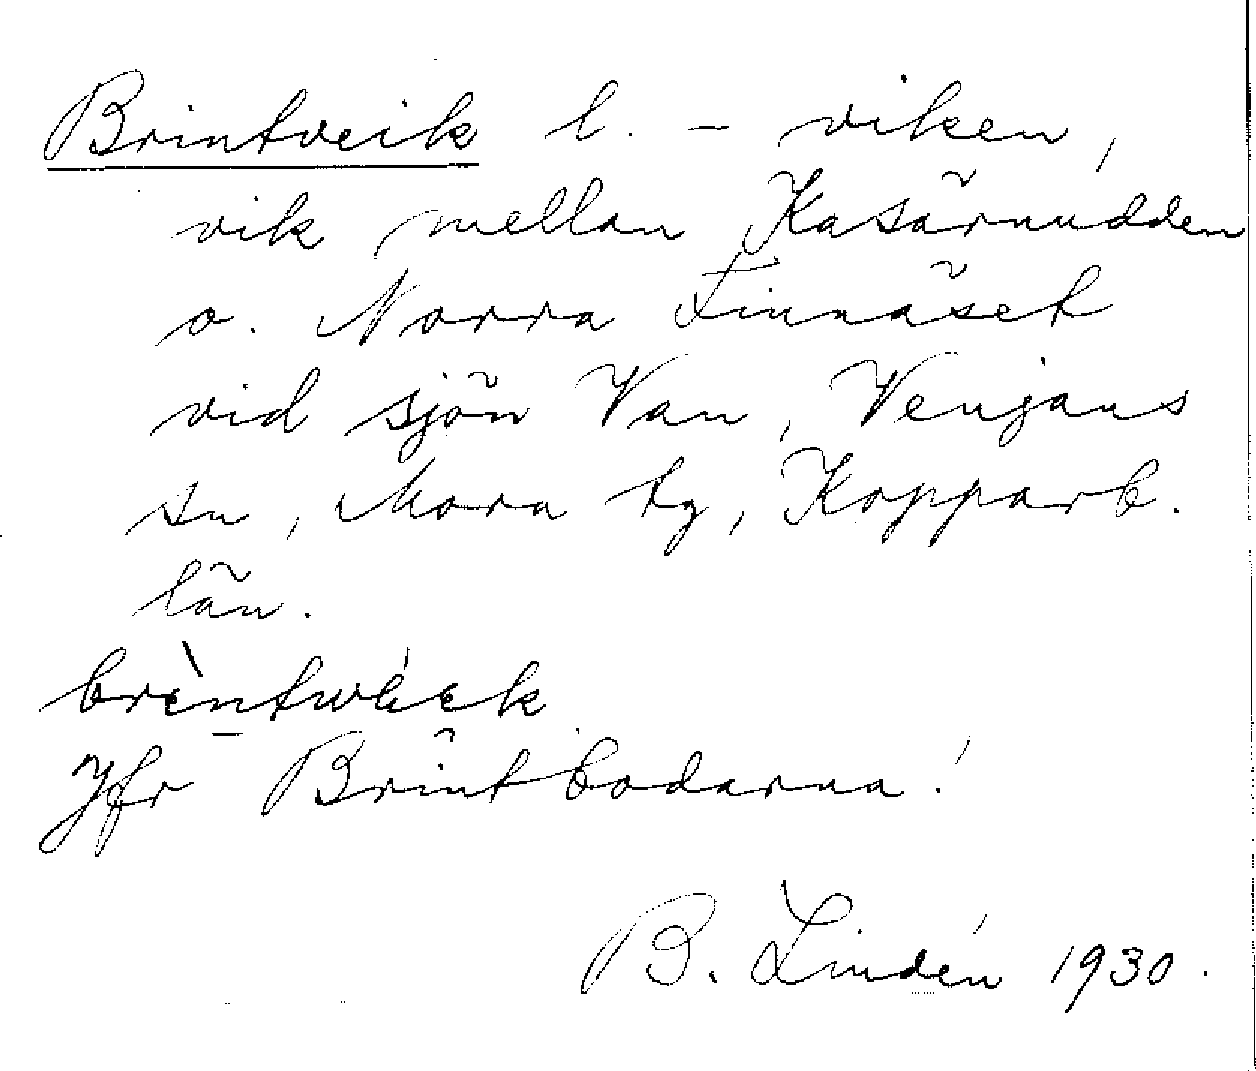 Brintveik l. – viken,
vik mellan Kasärnudden
o. Norra Finnäset
vid sjön Van, Venjans
sn, Mora tg, Kopparb.
län.
Jfr Brintbodarna!
B. Lindén 1930.